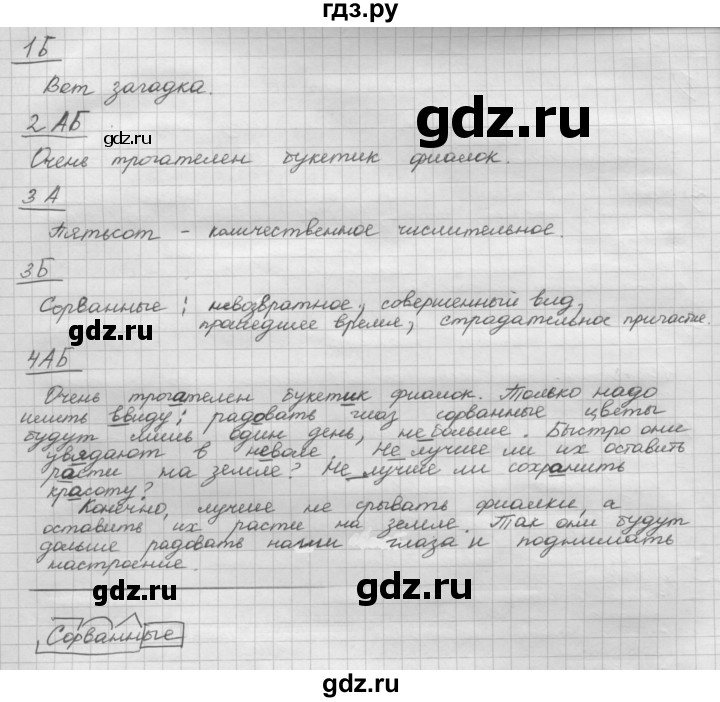 гдз.ру
1Б
Вот загадка.
2 АБ
gdz.ru
gdz.ru
Очень трогателен букетик фиалок.
3 А
Пятьсот – количественное числительное.
3Б
Сорванные : невозвратное, совершенный вид,
прошедшее время, страдательное причастие.
gdz.ru
gdz.ru
4АБ
Очень трогателен букетик фиалок. Только надо
иметь ввиду; радовать глаз сорванные цветы
будут лишь один день, не больше. Быстро они
увядают в неволе. Не лучше ли их оставить
расти на земле? Не лучше ли сохранить
красоту?
Конечно, лучше не срывать фиалки, а
оставить их расти на земле. Так они будут
дольше радовать наши глаза и поднимать
настроение.
gdz.ru
gdz.ru
Сорванные
gdz.ru